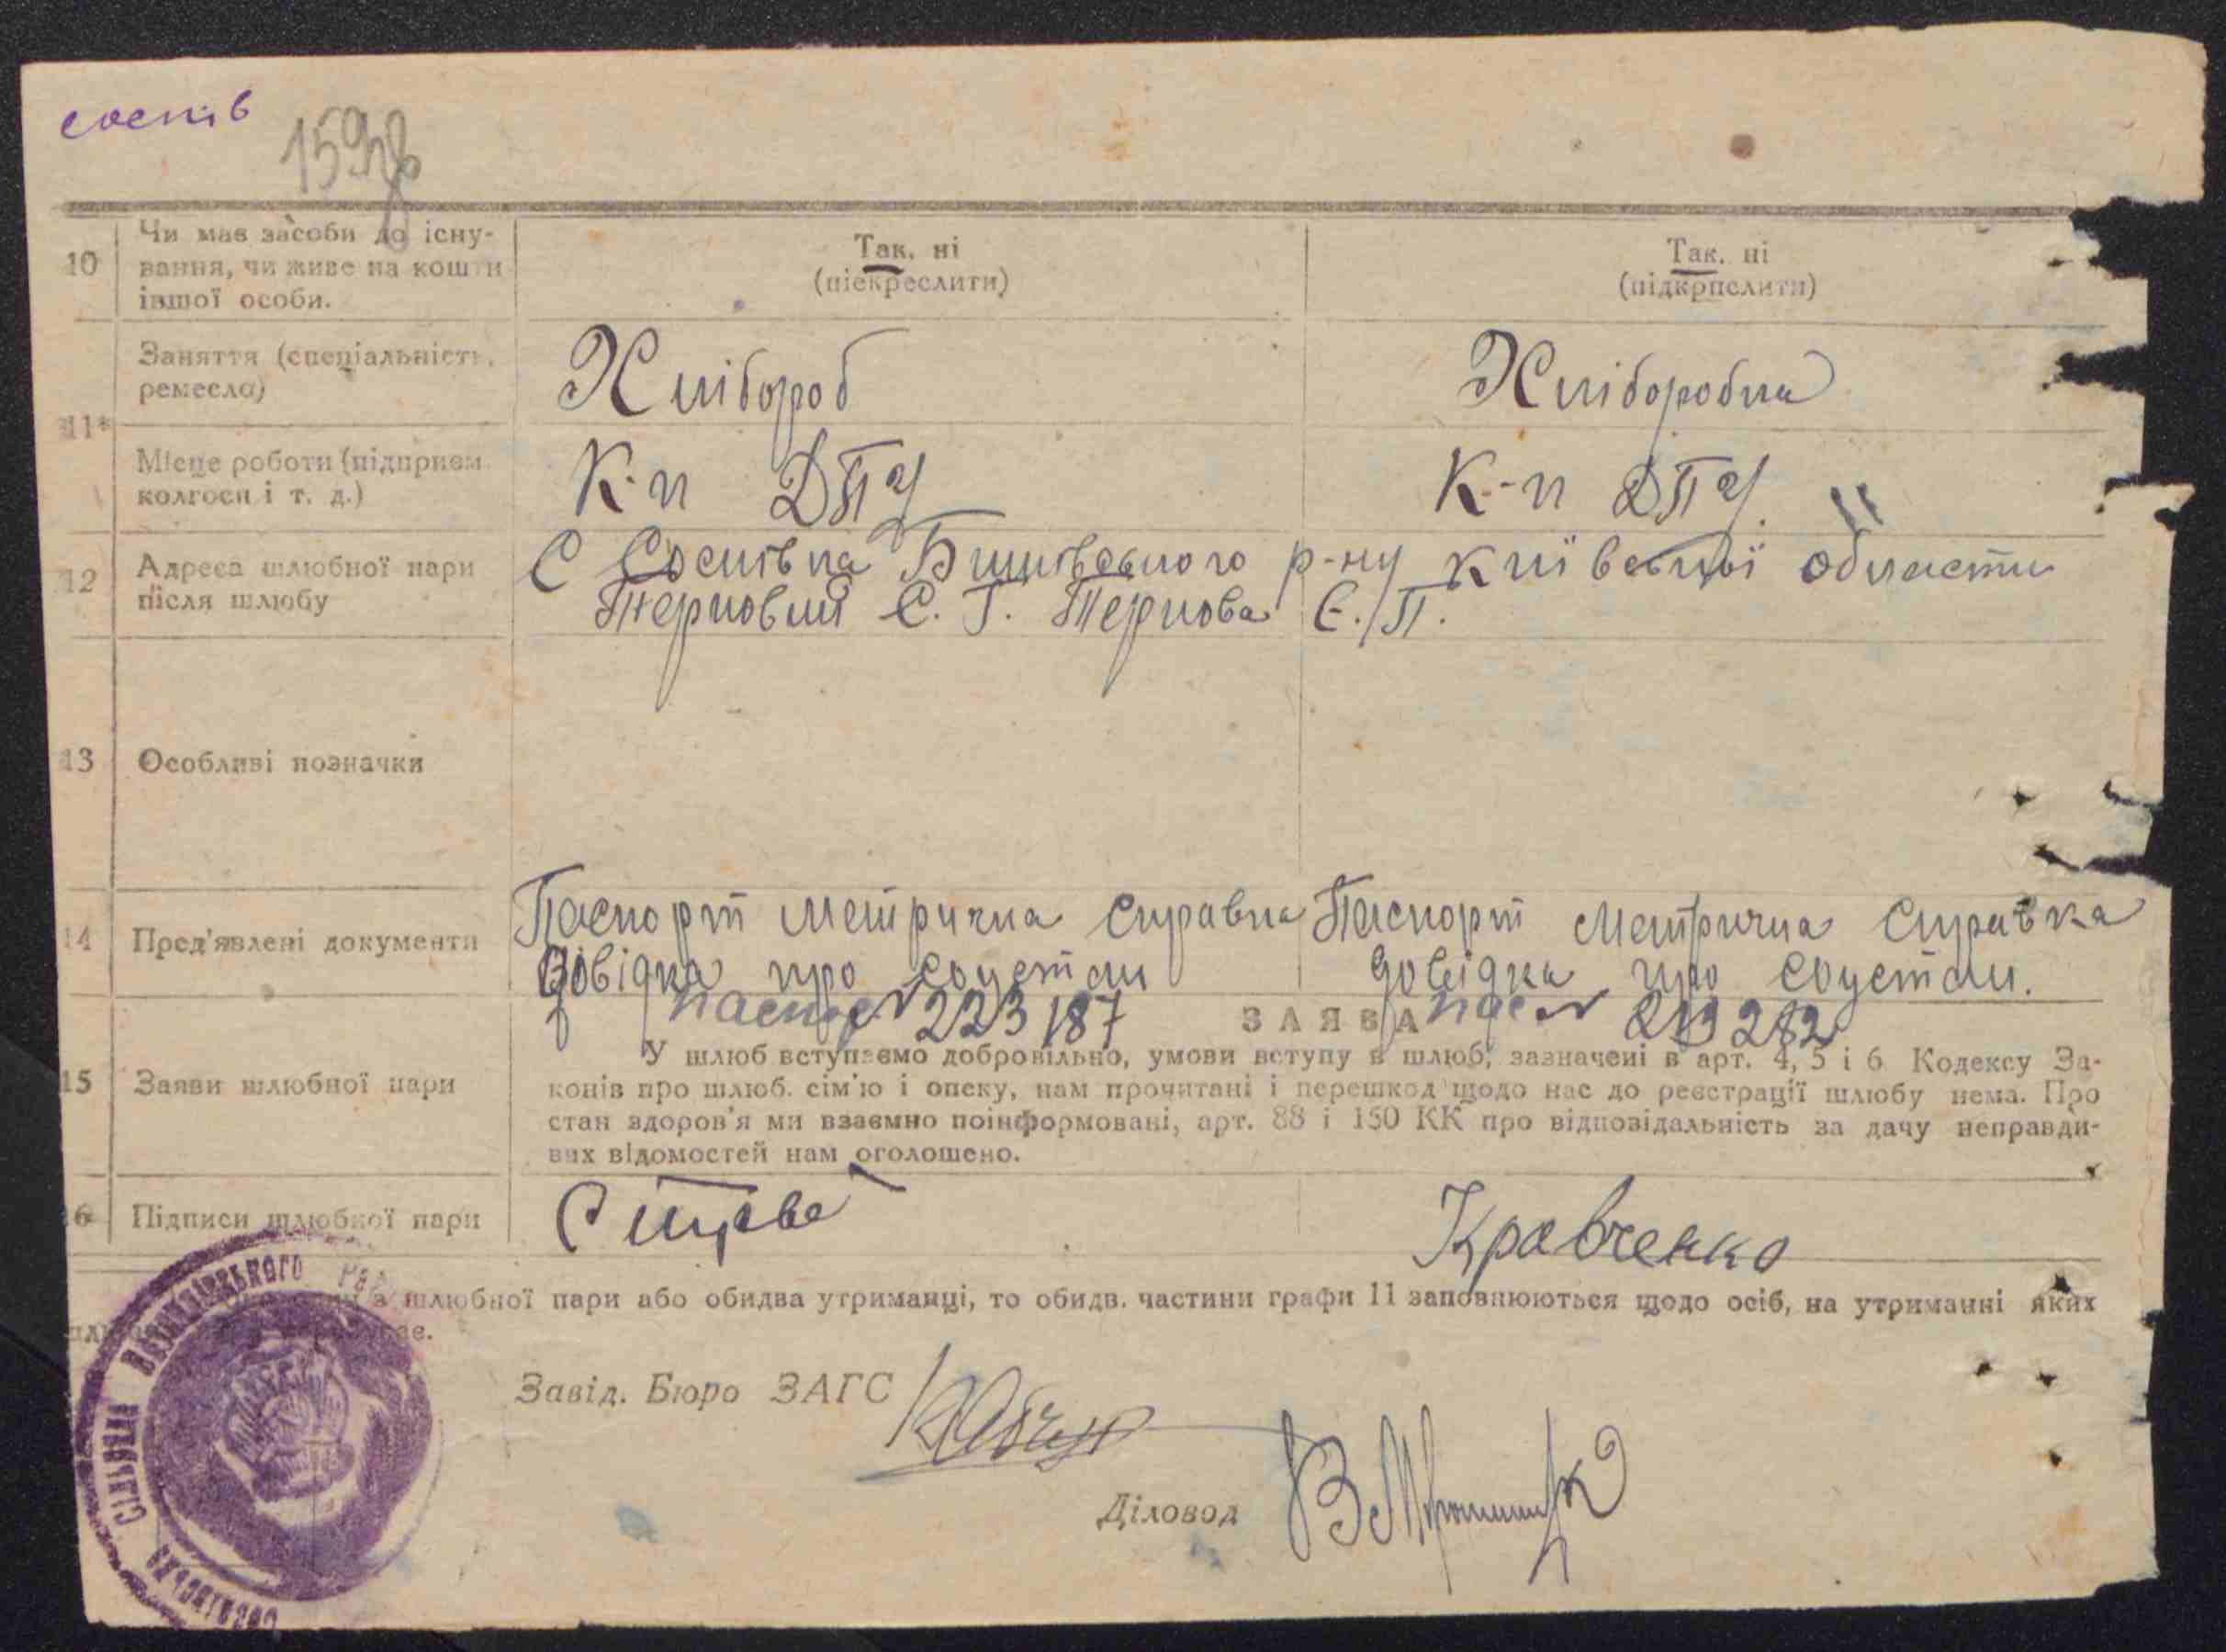 соснів
10 Чи має засоби до існу- Так, ні Так, ні
вання, чи живе на кошти (піекреслити) (підкрпслити)
іншої особи.
Заняття (спеціальність, Хлібороб Хліборобка
ремесла)
11*
Місце роботи (підприєм. К-п ДПУ К-п ДПУ
колгосп і т. д.)
12 Адреса шлюбної пари С Соснівка Бишівського р-ну київської області
після шлюбу Терновий Є. Г. Тернова Є. П.
13 Особливі позначки
14 Пред'явлені документи Паспорт Метрична справка Паспорт Метрична Справка
Довідка про соцстан довідка про соцстан.
паспорт 223187 ЗАЯВА пас
У шлюб вступаємо добровільно, умови вступу в шлюб, зазначені в арт. 4, 5 і 6 Кодексу За-
15 Заяви шлюбної пари конів про шлюб. сім'ю і опеку, нам прочитані і перешкод щодо нас до реєстрації шлюбу нема. Про
стан здоров'я ми взаємно поінформовані, арт. 88 і 150 КК про відповідальність за дачу неправди-
вих відомостей нам оголошено.
16 Підписи шлюбної пари Кравченко
з шлюбної пари або обидва утриманці, то обидв. частини графи 11 заповнюються щодо осіб, на утриманні яких
Завід. Бюро ЗАГС
Діловод
Сільська